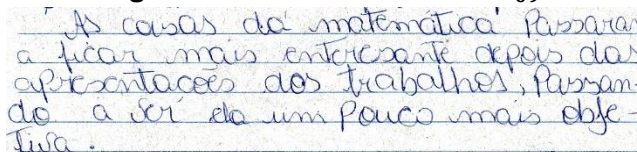 As coisas da matemática Passaram
a ficar mais enteresante depois das
apresentações dos trabalhos, Passan-
do a ser ela um pouco mais obje-
tiva.